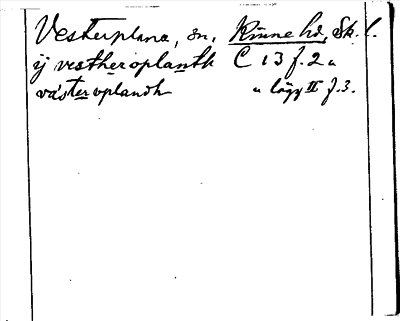 Vesterplana, sn, Kinne hd, Sk. l.
ij vestheroplanth C 13 f. 2 u
västeroplandh u lägg II f. 3.